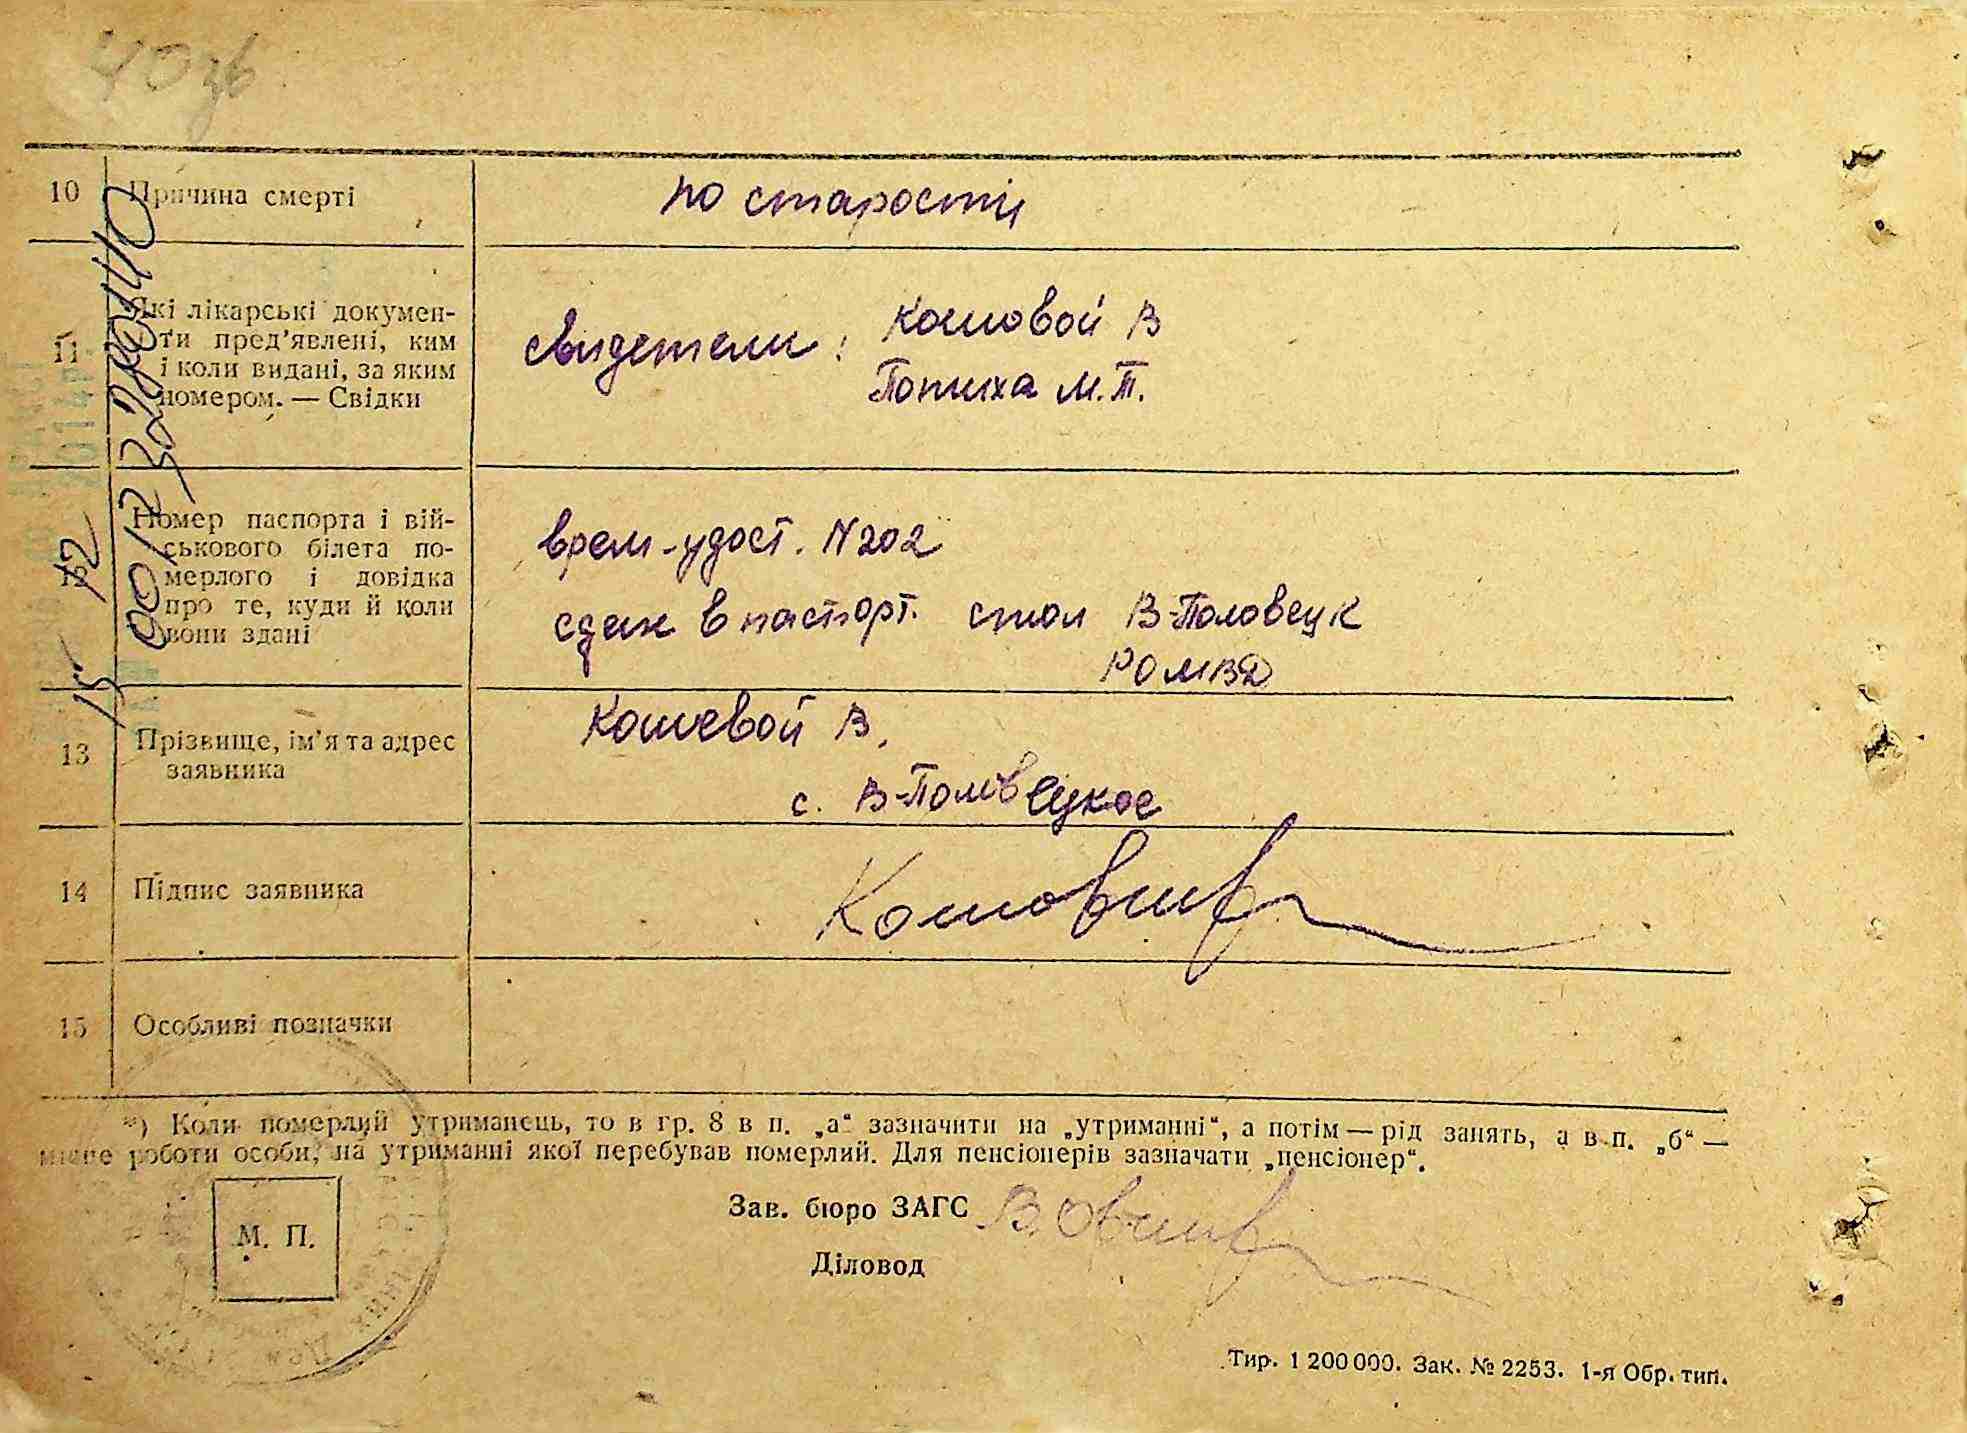 40 зв
10 Причина смерті по старости
11 Які лікарські докумен-
ти пред’явлені, ким
і коли видані, за яким
номером. — Свідки
свидетели: Кошовой В
Попиха М.Т.
12 Номер паспорта і вій-
ськового білета по-
мерлого і довідка
про те, куди й коли
вони здані
врем-удост. N 202
сдан в паспорт. стол В-Половецк
РОМВД
13 Прізвище, ім’я та адрес
заявника
Кошевой В,
с. В-Половецкое
14 Підпис заявника
15 Особливі позначки
*) Коли померлий утриманець, то в гр. 8 в п. „а“ зазначити на „утриманні“, а потім — рід занять, а в п. „б“ —
місце роботи особи, на утриманні якої перебував померлий. Для пенсіонерів зазначати „пенсіонер“.
М. П.
Зав. бюро ЗАГС
Діловод
Тир. 1 200 000. Зак. № 2253. 1-я Обр. тип.